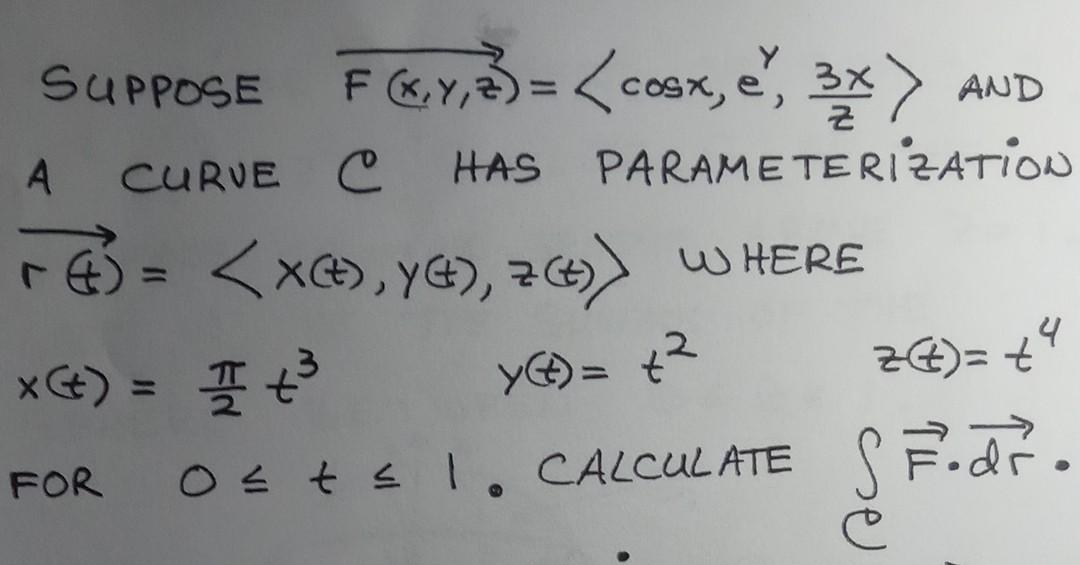 SUPPOSE F(x,y,z) = ⟨cosx, e^y, 3x/z⟩ AND
A CURVE C HAS PARAMETERIZATION
r(t) = ⟨x(t), y(t), z(t)⟩ WHERE
x(t) = π/2 t^3 y(t) = t^2 z(t) = t^4
FOR 0 ≤ t ≤ 1. CALCULATE ∫_C F⃗·dr⃗.